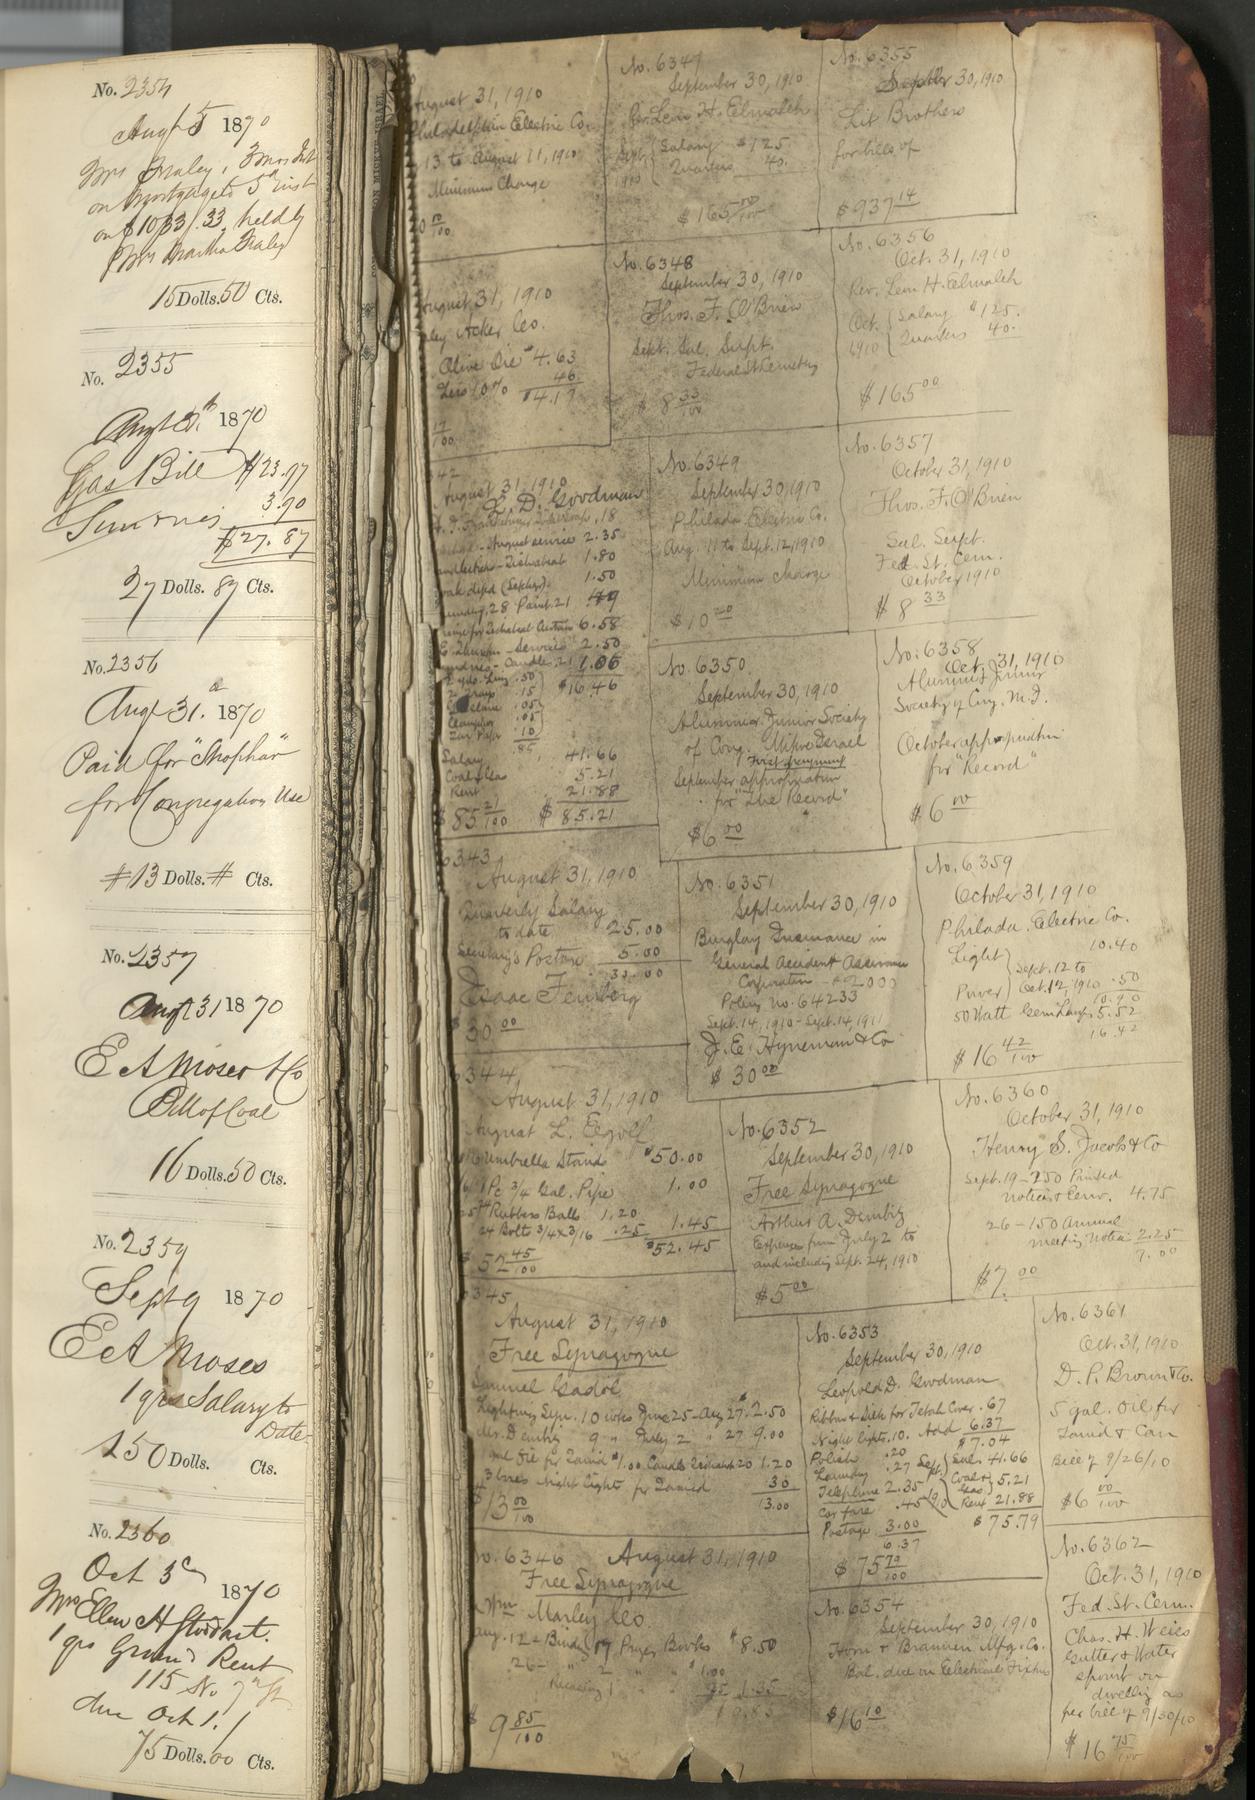 No. 2354
Augt 5 1870
Mrs Fraley, 3 mos Int
on Mortgage to 5th inst
on $1033/.33, held by
Mrs Martha Fraley
15 Dolls. 50 Cts.
No. 2355
Augt 1870
Gas Bill $23.97
3.90
$27.87
27 Dolls. 87 Cts.
No. 2356
Augt 31. 1870
Paid for "Shophar"
for Congregation Use
#13 Dolls. # Cts.
No. 2357
Augt 31 1870
E A Moses & Co
Bill of Coal
16 Dolls. 50 Cts.
No. 2359
Sept 9 1870
E A Moses
1 qrs Salary to
Date
150 Dolls. Cts.
No. 2360
Oct 3d 1870
Mrs Ellen H Stoddart.
1 qrs Ground Rent
115 No 7th St
due Oct 1.
75 Dolls. 00 Cts.
ON MICKVE ISRAEL
August 31, 1910
Philadelphia Electric Co.
13 to August 11, 1910
Minimum Charge
August 31, 1910
ley Acker Co.
Olive Oil $4.63
Less 10% 46
$4.17
17/100
42
August 31, 1910
L. D. Goodman
August service 2.35
1.80
1.50
6.58
2.50
1.06
$16.46
Salary 41.66
Coal & Gas 5.21
Rent 21.88
$85 21/100 $85.21
6343
August 31, 1910
Quarterly Salary
to date 25.00
Secretary's Postage 5.00
30.00
Isaac Feinberg
30 00
6344
August 31, 1910
August L. Eigolf
Umbrella Stand $50.00
1 Pc 3/4 Gal. Pipe 1.00
Rubber Balls 1.20
24 Bolts 3/4 x 3/16 .25 1.45
$52.45
$52 45/100
6345
August 31, 1910
Free Synagogue
Samuel Gadol
Lighting Syn. 10 wks June 25 - Aug 27 $2.50
9 " July 2 " 27 9.00
gal Oil for Tamid $1.00 1.20
3 boxes Night Lights for Tamid 30
13.00
$13 00/100
No. 6346 August 31, 1910
Free Synagogue
Wm Marley Co
Aug. 12 - Bindg 17 Prayer Books $8.50
26 - " 2 " " $1.00
1 " 35 1.35
$9 85/100
No. 6347
September 30, 1910
Rev. Leon H. Elmaleh
Sept. 1910 { Salary $125
Quarters 40.
$165 00/100
No. 6348
September 30, 1910
Thos. F. O'Brien
Sept. Sal. Supt.
Federal St Cemetery
$8 33/100
No. 6349
September 30, 1910
Philada. Electric Co.
Aug. 11 to Sept. 12, 1910
Minimum charge
$10 20
No. 6350
September 30, 1910
Alumni & Junior Society
of Cong. Mikve Israel
First payment
September appropriation
for "The Record"
$6 00
No. 6351
September 30, 1910
Burglary Insurance in
General Accident Assurance
Corporation - $2000
Policy No. 64233
Sept. 14, 1910 - Sept. 14, 1911
J. E. Hyneman & Co
$30 00
No. 6352
September 30, 1910
Free Synagogue
Arthur A. Dembitz
Expenses from July 2 to
and including Sept. 24, 1910
$5 00
No. 6353
September 30, 1910
Leopold D. Goodman
Ribbon & Silk for Tebah Cover .67
Night lights .10. Add 6.37
$7.04
Polish .20
Laundry .27
Telephone 2.35
Car fare .45
Postage 3.00
6.37
Sept. 1910 { Sal. 41.66
Coal & Gas 5.21
Rent 21.88
$75.79
$75 79/100
No. 6354
September 30, 1910
Horn & Brannen Mfg. Co.
Bal. due on Electrical Fixtures
$16 10
No. 6355
Septbr 30, 1910
Lit Brothers
for bills of
$937 14
No. 6356
Oct. 31, 1910
Rev. Leon H. Elmaleh
Oct. 1910 { Salary $125.
Quarters 40.
$165 00
No. 6357
October 31, 1910
Thos. F. O'Brien
Sal. Supt.
Fed. St. Cem.
October 1910
$8 33
No. 6358
Oct. 31, 1910
Alumni & Junior
Society of Cong. M. I.
October appropriation
for "Record"
$6 00
No. 6359
October 31, 1910
Philada. Electric Co.
Light 10.40
Power } Sept. 12 to
Oct. 12, 1910 .50
10.90
50 Watt Gem Lamps 5.52
16.42
$16 42/100
No. 6360
October 31, 1910
Henry S. Jacobs & Co
Sept. 19 - 250 Printed
notices & Env. 4.75
26 - 150 Annual
meeting Notices 2.25
7.00
$7. 00
No. 6361
Oct. 31, 1910
D. P. Brown & Co.
5 gal. Oil for
Tamid & Can
Bill of 9/26/10
$6 00/100
No. 6362
Oct. 31, 1910
Fed. St. Cem.
Chas. H. Weiss
Gutter & Water
spout on
dwelling as
per bill of 9/30/10
$16 75/100